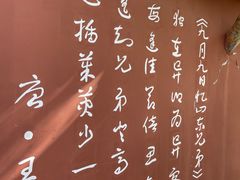 《九月九日忆山东兄弟》
独在异乡为异
每逢佳节倍思
遥知兄弟登高
遍插茱萸少一
唐·王